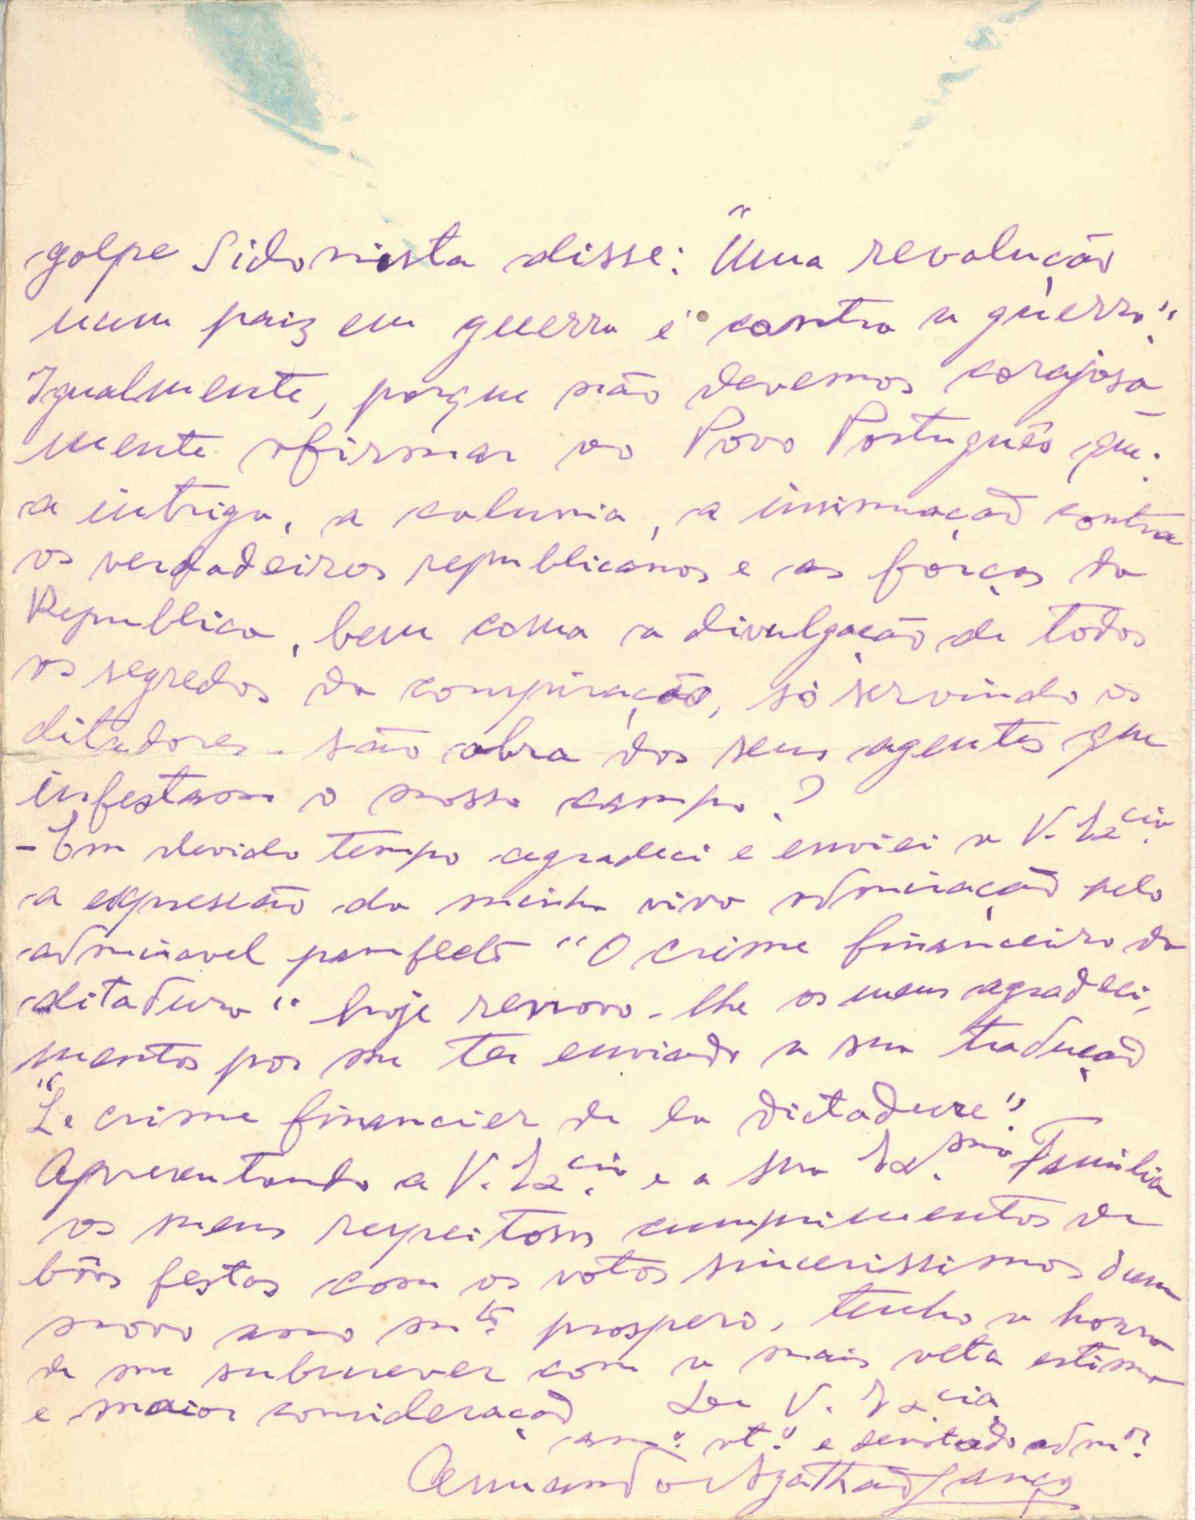 golpe Sidonista disse: "Uma revolução
num paiz em guerra é contra a guerra".
Igualmente, porque não devemos corajosa
mente afirmar ao Povo Português que:
a intriga, a calunia, a insinuação contra
os verdadeiros republicanos e as forças da
Republica, bem como a divulgação de todos
os segredos da conspiração, só servindo os
ditadores - são obra dos seus agentes que
infestam o nosso campo?
- Em devido tempo agradeci e enviei a V. Excia.
a expressão da minha viva admiração pelo
admiravel panfleto "O crime financeiro da
ditadura" hoje renovo-lhe os meus agradeci-
mentos por me ter enviado a sua tradução
"Le crime financier de la dictadure".
Apresentando a V. Excia. e a sua Ex.ma Familia
os meus respeitosos cumprimentos de
bôas festas com os votos sincerissimos dum
novo ano mto. prospero, tenho a honra
de me subscrever com a mais alta estima
e maior consideração De V. Excia
amo. at.o e devotado admor.
Armando Agathão Lança